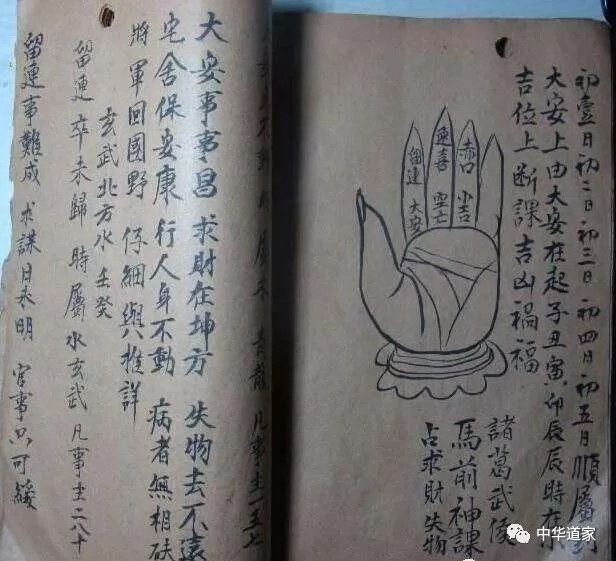 初壹日初二日初三日初四日初五日順屬到
大安上由大安在起子丑寅卯辰辰時在小
吉位上斷課吉凶禍福
赤口 小吉
速喜 空亡
留連 大安
諸葛武侯
馬前神課
占求財失物
青龍 凡事主一五七
大安事事昌 求財在坤方 失物去不遠
宅舍保安康 行人身不動 病者無相砆
將軍回國野 仔細與推詳
玄武北方水 壬癸
留連 卒未歸 時屬水玄武 凡事主二八十
留連事難成 求謀日未明 官事只可緩
中华道家